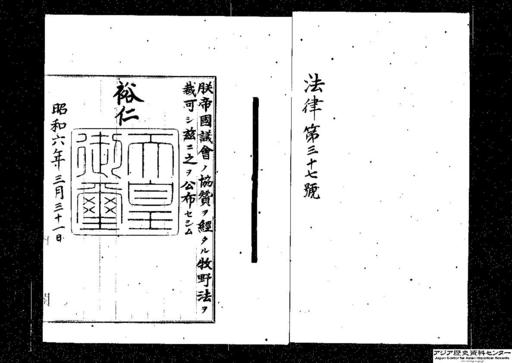 法律第三十七號
朕帝國議會ノ協賛ヲ經タル牧野法ヲ
裁可シ茲ニ之ヲ公布セシム
裕仁
天皇御璽
昭和六年三月三十一日
アジア歴史資料センター
Japan Center for Asian Historical Records